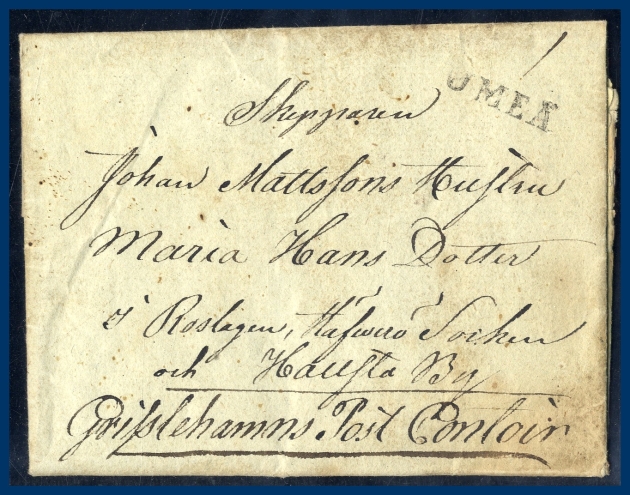 UMEÅ
Skepparen
Johan Mattssons Hustru
Maria Hans Dotter
i Roslagen, Häfwerö Sochen
och Hallsta By
Grisslehamns Post Contoir